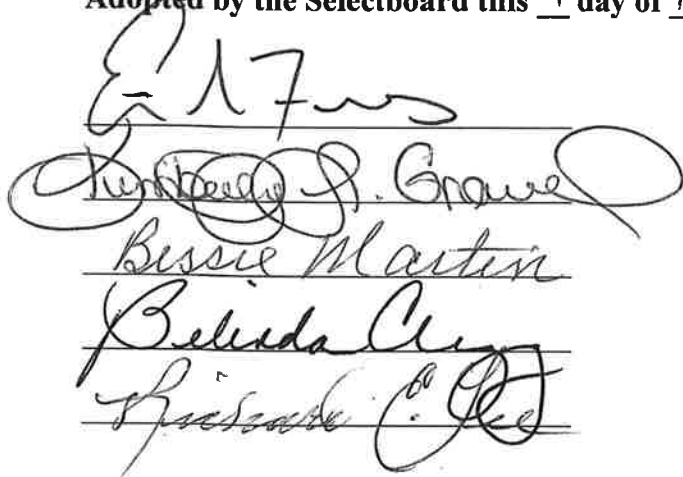 Adopted by the Selectboard this day of
Kimberly A. Gravel
Bessie Martin
Belinda
Richard E. Lee